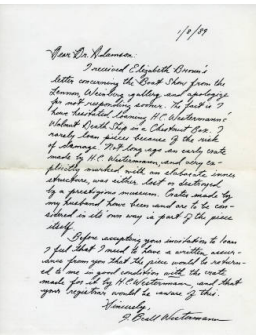 1/8/89
Dear Dr. Adamson:
I received Elizabeth Brown's
letter concerning the Boat Show from the
Lennon, Weinberg gallery and apologize
for not responding sooner. The fact is I
have hesitated loaning H.C. Westermann's
Walnut Death Ship in a Chestnut Box. I
rarely loan pieces because of the risk
of damage. Not long ago an early crate
made by H.C. Westermann, and very ex-
plicitly marked with an elaborate inner
structure, was either lost or destroyed
by a prestigious museum. Crates made by
my husband have been and are to be con-
sidered in its' own way is part of the piece
itself.
Before accepting your invitation to loan
I feel that I need to have a written assur-
ance from you that the piece would be return-
ed to me in good condition with the crate
made for it by H.C. Westermann, and that
your registrar would be aware of this.
Sincerely,
J. Beall Westermann